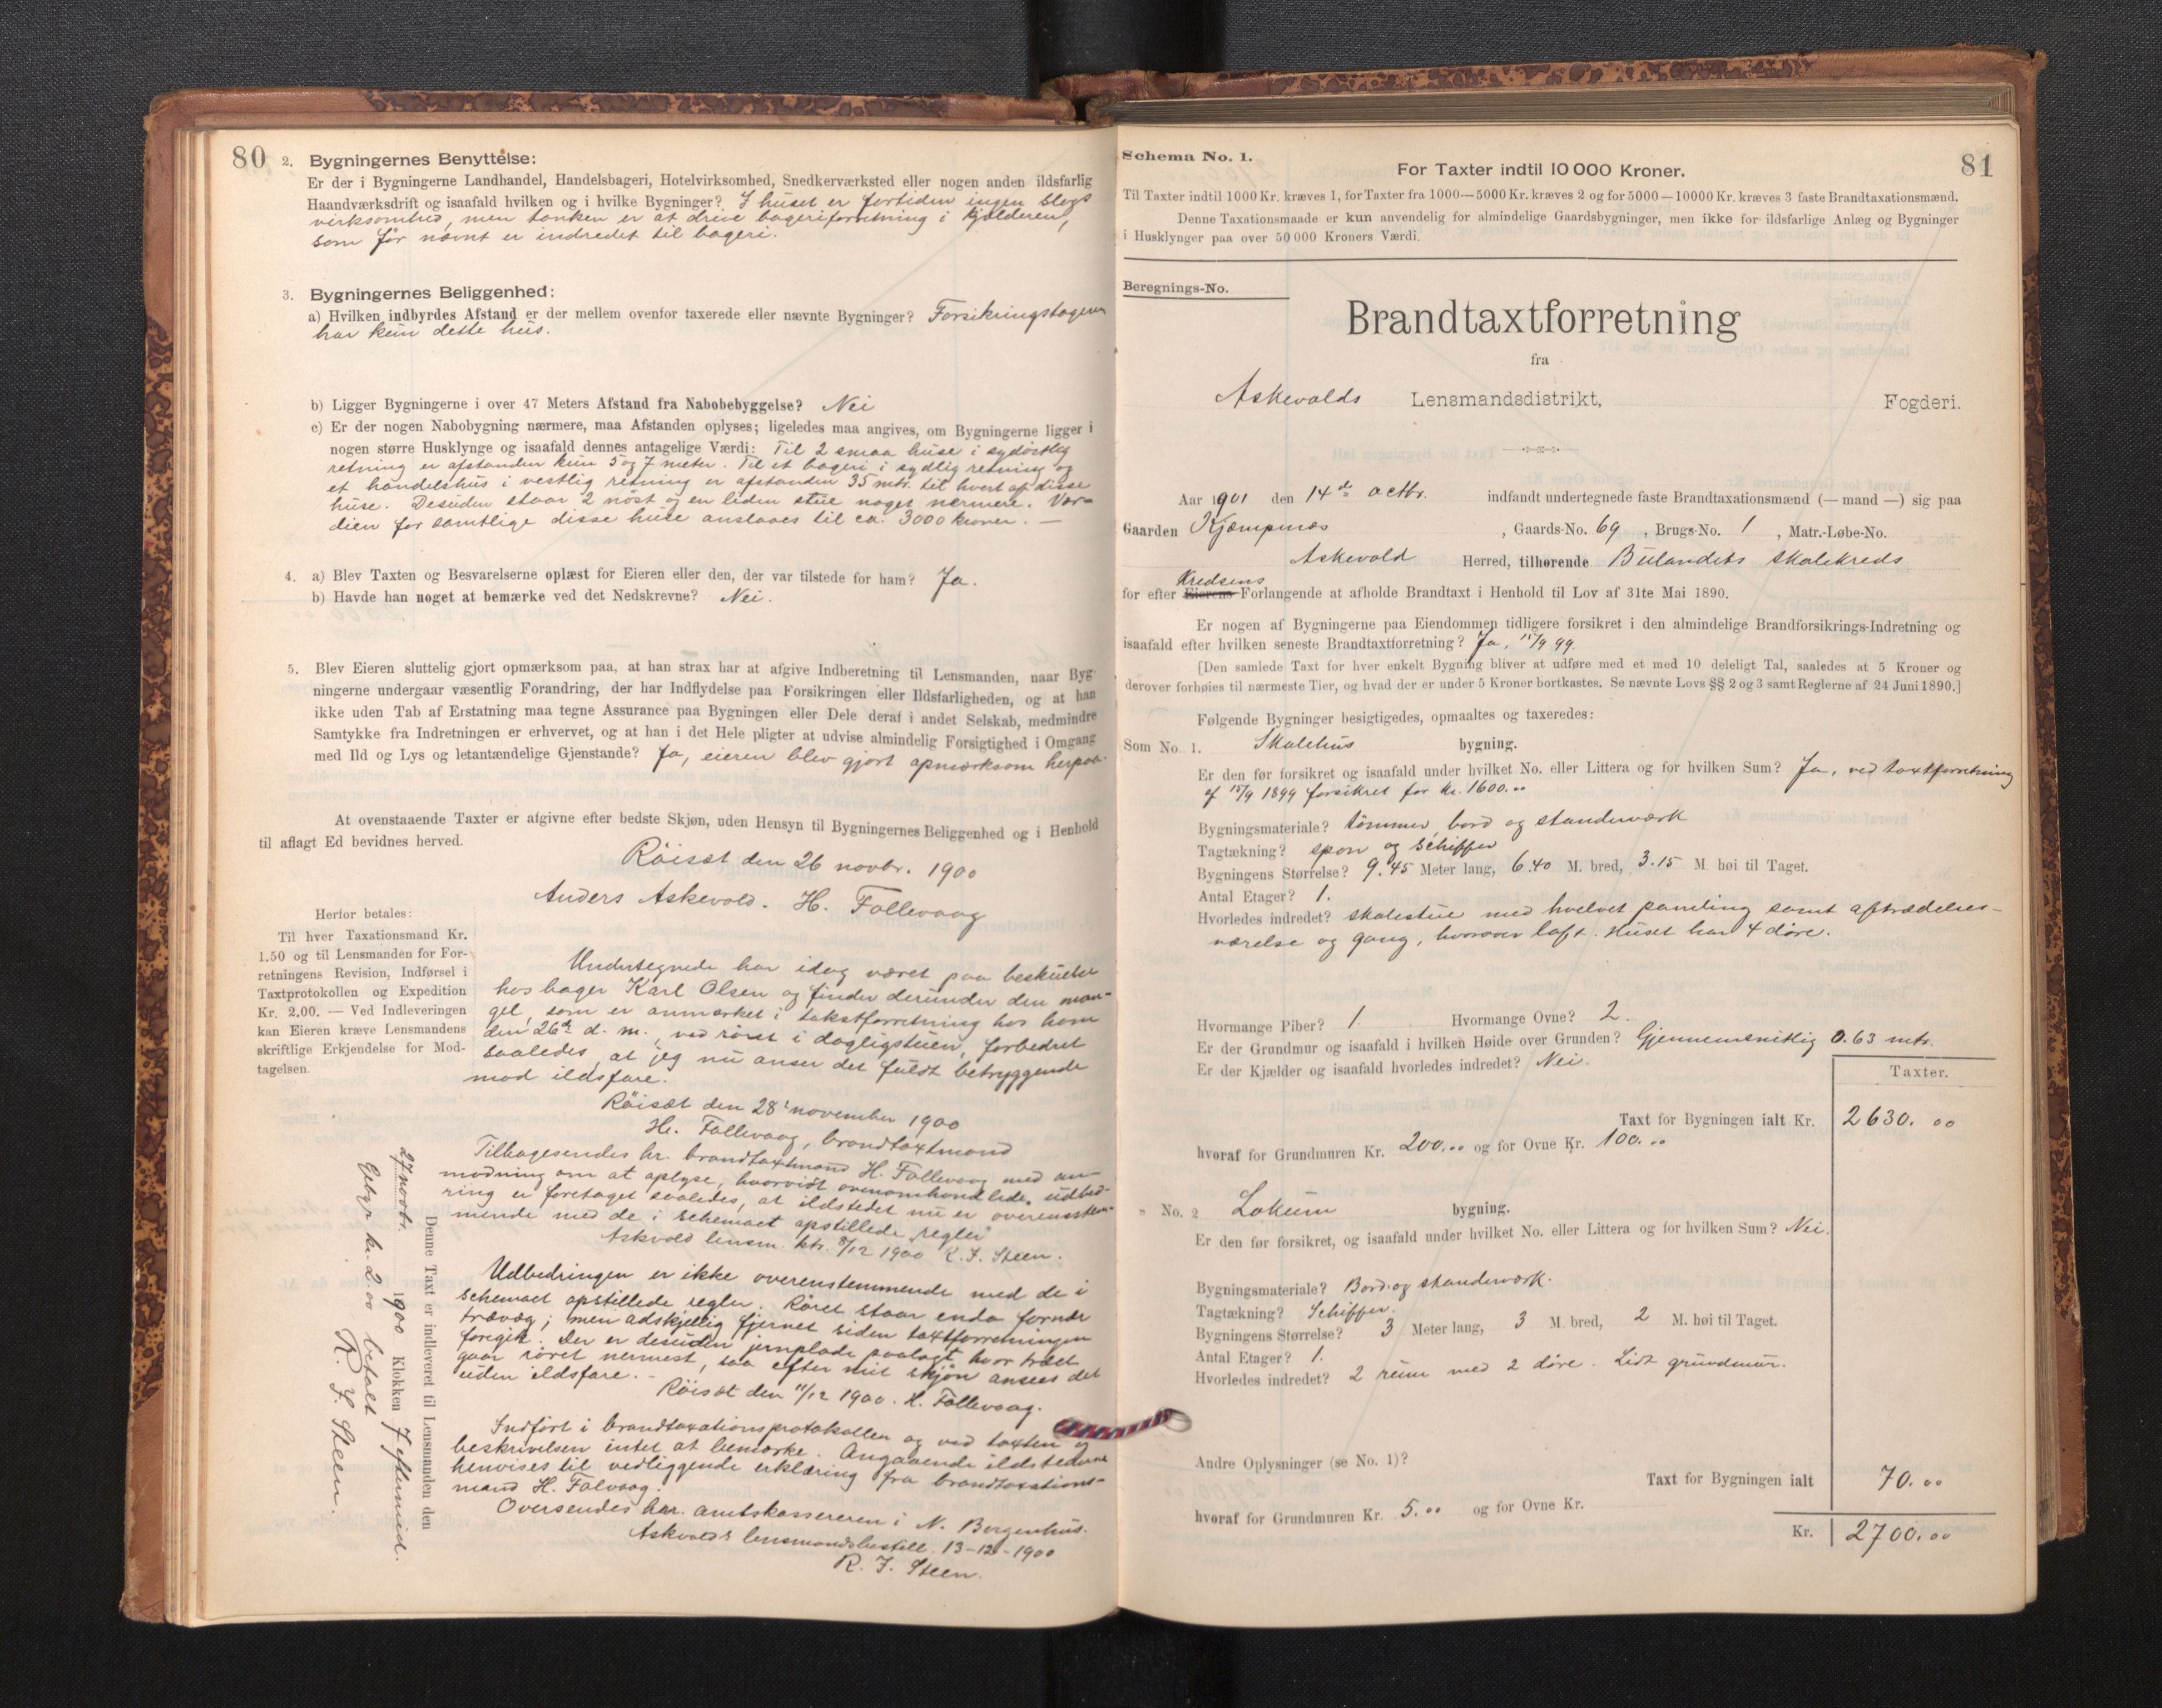 80
2. Bygningernes Benyttelse:
Er der i Bygningerne Landhandel, Handelsbageri, Hotelvirksomhed, Snedkerværksted eller nogen anden ildsfarlig
Haandværksdrift og isaafald hvilken og i hvilke Bygninger? I huset er fortiden ingen slags
virksomhed, men tanken er at drive bageriforretning i kjelderen,
som før nævnt er indredet til bageri.
3. Bygningernes Beliggenhed:
a) Hvilken indbyrdes Afstand er der mellem ovenfor taxerede eller nævnte Bygninger? Forsikringstageren
har kun dette hus.
b) Ligger Bygningerne i over 47 Meters Afstand fra Nabobebyggelse? Nei
c) Er der nogen Nabobygning nærmere, maa Afstanden oplyses; ligeledes maa angives, om Bygningerne ligger i
nogen større Husklynge og isaafald dennes antagelige Værdi: Til 2 smaa huse i sydøstlig
retning er afstanden kun 5 og 7 meter. Til et bageri i sydlig retning og
et handelshus i vestlig retning er afstanden 35 mtr. til hvert af disse
huse. Desuden staar 2 nøst og en liden stue noget nærmere. Vær-
dien for samtlige disse huse anslaaes til ca. 3000 kroner. —
4. a) Blev Taxten og Besvarelserne oplæst for Eieren eller den, der var tilstede for ham? Ja.
b) Havde han noget at bemærke ved det Nedskrevne? Nei.
5. Blev Eieren sluttelig gjort opmærksom paa, at han strax har at afgive Indberetning til Lensmanden, naar Byg-
ningerne undergaar væsentlig Forandring, der har Indflydelse paa Forsikringen eller Ildsfarligheden, og at han
ikke uden Tab af Erstatning maa tegne Assurance paa Bygningen eller Dele deraf i andet Selskab, medmindre
Samtykke fra Indretningen er erhvervet, og at han i det Hele pligter at udvise almindelig Forsigtighed i Omgang
med Ild og Lys og letantændelige Gjenstande? Ja, eieren blev gjort opmærksom herpaa.
At ovenstaaende Taxter er afgivne efter bedste Skjøn, uden Hensyn til Bygningernes Beliggenhed og i Henhold
til aflagt Ed bevidnes herved.
Röiset den 26 novbr. 1900
Anders Askevold. H. Follevaag
Herfor betales:
Til hver Taxationsmand Kr.
1.50 og til Lensmanden for For-
retningens Revision, Indførsel i
Taxtprotokollen og Expedition
Kr. 2.00. — Ved Indleveringen
kan Eieren kræve Lensmandens
skriftlige Erkjendelse for Mod-
tagelsen.
Undertegnede har idag været paa beskuelse
hos bager Karl Olsen og finder derunder den man-
gel, som er anmærket i takstforretning hos ham
den 26de d. m., ved røret i dagligstuen, forbedret
saaledes, at jeg nu anser det fuldt betryggende
mod ildsfare.
Röiset den 28 november 1900
H. Follevaag, brandtaxtmand
Tilbagesendes hr. brandtaxtmand H. Follevaag med an-
modning om at oplyse, hvorvidt ovenomhandlede udbed-
ring er foretaget saaledes, at ildstedet nu er overensstem-
mende med de i schemaet opstillede „regler”
Askvold lensm. ktr. 8/12 1900 R. J. Steen.
Udbedringen er ikke overenstemmende med de i
schemaet opstillede regler. Røret staar enda fornær
trævæg; men adskjellig fjernet siden taxtforretningen
foregik. Der er desuden jernplade paalagt hvor træet
gaar røret nermest, saa efter mit skjøn ansees det
uden ildsfare. -
Röiset den 11/12 1900. H. Follevaag.
Indført i brandtaxationsprotokollen og ved taxten og
beskrivelsen intet at bemærke. Angaaende ildstederne
henvises til vedliggende erklæring fra brandtaxations-
mand H. Folvaag.
Oversendes hr. amtskassereren i N. Bergenhus.
Askvolds lensmandsbestill. 13-12-1900
R. J. Steen.
Denne Taxt er indleveret til Lensmanden den
27 novbr. 1900 Klokken 7 eftermid.
Gebyr kr. 2.00 betalt
R. J. Steen.
81
Schema No. 1.
For Taxter indtil 10 000 Kroner.
Til Taxter indtil 1000 Kr. kræves 1, for Taxter fra 1000—5000 Kr. kræves 2 og for 5000—10000 Kr. kræves 3 faste Brandtaxationsmænd.
Denne Taxationsmaade er kun anvendelig for almindelige Gaardsbygninger, men ikke for ildsfarlige Anlæg og Bygninger
i Husklynger paa over 50 000 Kroners Værdi.
Beregnings-No.
Brandtaxtforretning
fra
Askevolds Lensmandsdistrikt, Fogderi.
Aar 1901 den 14de octbr. indfandt undertegnede faste Brandtaxationsmænd (— mand —) sig paa
Gaarden Kjempenes, Gaards-No. 69, Brugs-No. 1, Matr.-Løbe-No.
Askevold Herred, tilhørende Bulandets skolekreds
Kredsens
for efter Eierens Forlangende at afholde Brandtaxt i Henhold til Lov af 31te Mai 1890.
Er nogen af Bygningerne paa Eiendommen tidligere forsikret i den almindelige Brandforsikrings-Indretning og
isaafald efter hvilken seneste Brandtaxtforretning? Ja, 15/9 99.
[Den samlede Taxt for hver enkelt Bygning bliver at udføre med et med 10 deleligt Tal, saaledes at 5 Kroner og
derover forhøies til nærmeste Tier, og hvad der er under 5 Kroner bortkastes. Se nævnte Lovs §§ 2 og 3 samt Reglerne af 24 Juni 1890.]
Følgende Bygninger besigtigedes, opmaaltes og taxeredes:
Som No. 1. Skolehus bygning.
Er den før forsikret og isaafald under hvilket No. eller Littera og for hvilken Sum? Ja, ved taxtforretning
af 15/9 1899 forsikret for kr. 1600.00
Bygningsmateriale? tømmer, bord og standerværk
Tagtækning? spon og Schiffer
Bygningens Størrelse? 9.45 Meter lang, 6.40 M. bred, 3.15 M. høi til Taget.
Antal Etager? 1.
Hvorledes indredet? skolestue med hvelvet paneling samt aftrædelses-
værelse og gang, hvorover loft. Huset har 4 døre.
Hvormange Piber? 1. Hvormange Ovne? 2.
Er der Grundmur og isaafald i hvilken Høide over Grunden? Gjennemsnitlig 0.63 mtr.
Er der Kjælder og isaafald hvorledes indredet? Nei.
Taxter.
Taxt for Bygningen ialt Kr. 2630.00
hvoraf for Grundmuren Kr. 200.00 og for Ovne Kr. 100.00
" No. 2 Lokum bygning.
Er den før forsikret, og isaafald under hvilket No. eller Littera og for hvilken Sum? Nei.
Bygningsmateriale? Bord og standerværk.
Tagtækning? Schiffer.
Bygningens Størrelse? 3 Meter lang, 3 M. bred, 2 M. høi til Taget.
Antal Etager? 1.
Hvorledes indredet? 2 rum med 2 døre. Lidt grundmur.
Andre Oplysninger (se No. 1)?
Taxt for Bygningen ialt 70.00
hvoraf for Grundmuren Kr. 5.00 og for Ovne Kr.
Kr. 2700.00